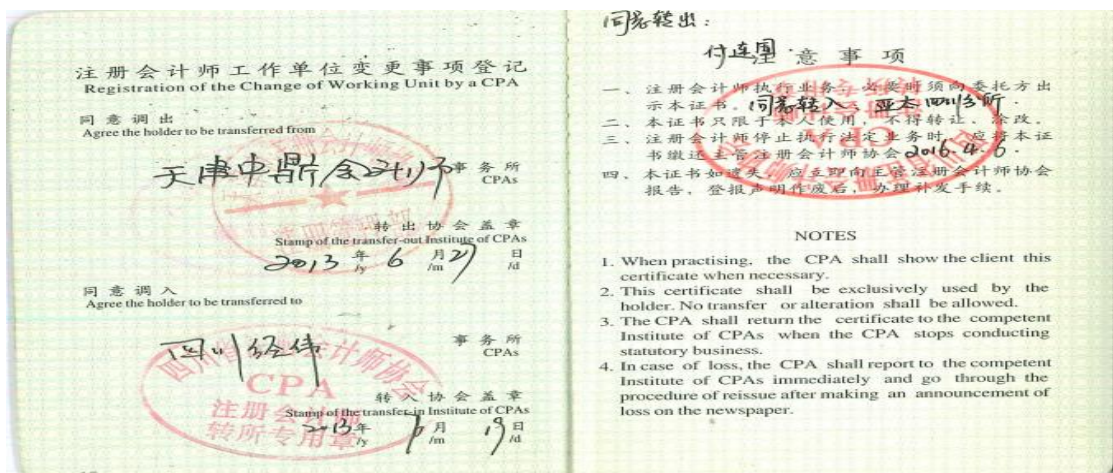 注册会计师工作单位变更事项登记
Registration of the Change of Working Unit by a CPA
同意调出
Agree the holder to be transferred from
天津中鼎会计师 事务所
CPAs
转出协会盖章
Stamp of the transfer-out Institute of CPAs
2013 年 6 月 27 日
/y /m /d
同意调入
Agree the holder to be transferred to
四川经纬 事务所
CPAs
四川省注册会计师协会
CPA
注册会计师
转所专用章
转入协会盖章
Stamp of the transfer-in Institute of CPAs
2013 年 月 19 日
/y /m /d
同意转出：
付连国
注意事项
一、注册会计师执行业务，必要时须向委托方出
示本证书。
同意转入 亚太四川分所.
二、本证书只限于本人使用，不得转让、涂改。
三、注册会计师停止执行法定业务时，应将本证
书缴还主管注册会计师协会
2016.4.6.
CPA
四、本证书如遗失，应立即向主管注册会计师协会
报告，登报声明作废后，办理补发手续。
NOTES
1. When practising, the CPA shall show the client this
certificate when necessary.
2. This certificate shall be exclusively used by the
holder. No transfer or alteration shall be allowed.
3. The CPA shall return the certificate to the competent
Institute of CPAs when the CPA stops conducting
statutory business.
4. In case of loss, the CPA shall report to the competent
Institute of CPAs immediately and go through the
procedure of reissue after making an announcement of
loss on the newspaper.